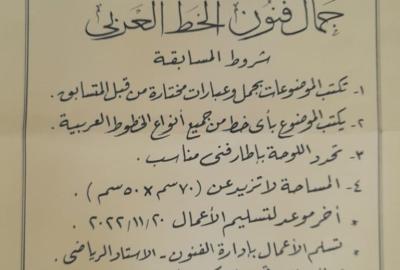 جمال فنون الخط العربي
شروط المسابقة
١- تكتب الموضوعات بجمل وعبارات مختارة من قبل المتسابق .
٢- يكتب الموضوع بأى خط من جميع أنواع الخطوط العربية .
٣- تحدد اللوحة بإطار فنى مناسب .
٤- المساحة لا تزيد عن ( ٧٠سم × ٥٠سم ) .
* أخر موعد لتسليم الأعمال ٢٠٢٢/١١/٢٠
* تسلم الأعمال بإدارة الفنون - الاستاد الرياضى .